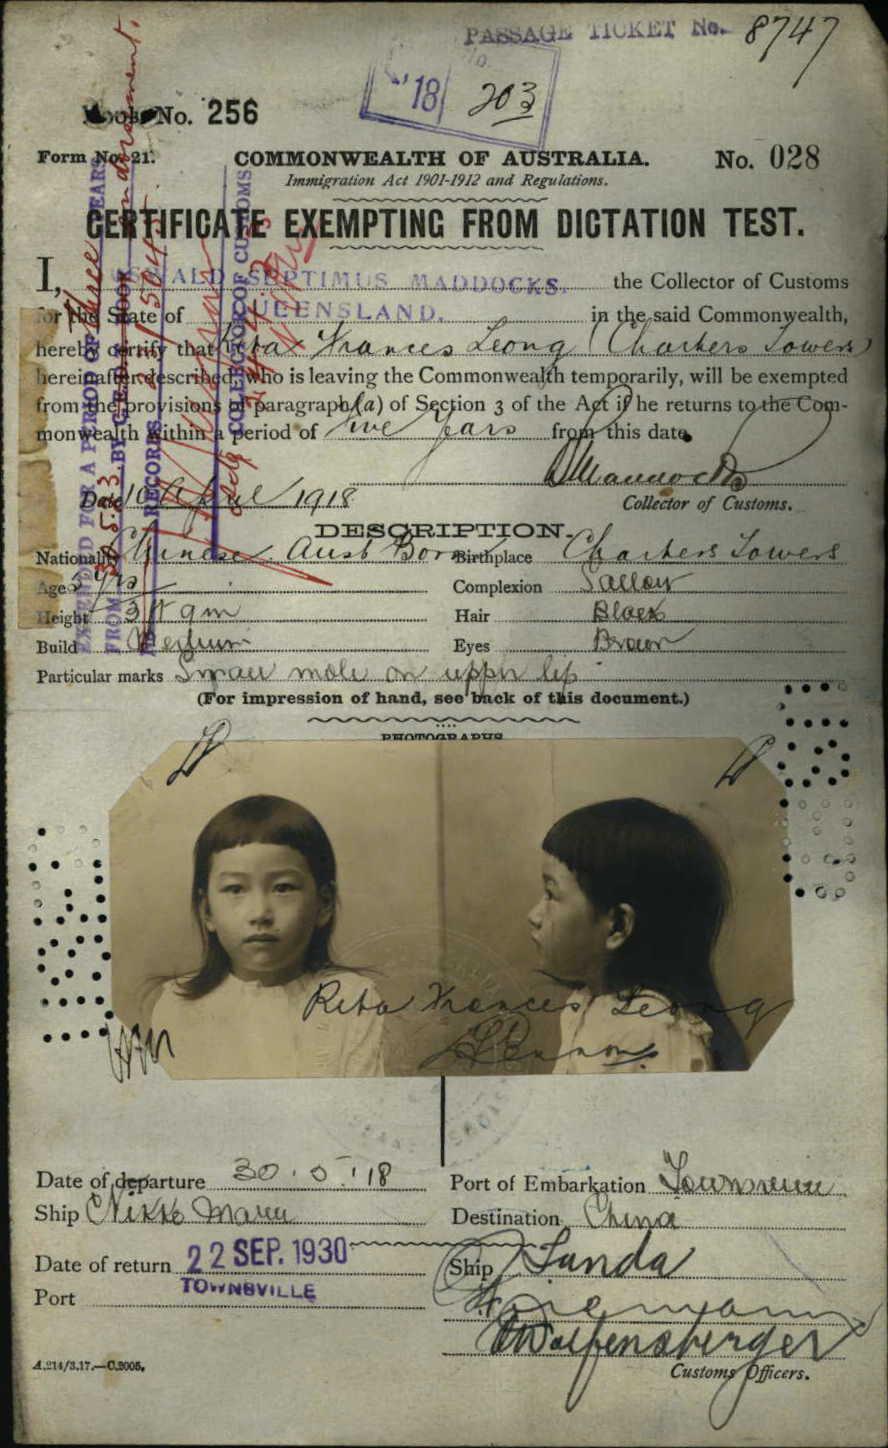 PASSAGE TICKET No. 8747
18/203
Book No. 256
Form No. 21.
COMMONWEALTH OF AUSTRALIA.
No. 028
Immigration Act 1901-1912 and Regulations.
CERTIFICATE EXEMPTING FROM DICTATION TEST.
I, OSWALD SEPTIMUS MADDOCKS, the Collector of Customs
for the State of QUEENSLAND. in the said Commonwealth,
hereby certify that Rita Frances Leong (Charters Towers)
hereinafter described, who is leaving the Commonwealth temporarily, will be exempted
from the provisions of paragraph (a) of Section 3 of the Act if he returns to the Com-
monwealth within a period of five years from this date.
Date 10 April 1918
Collector of Customs.
EXTENDED FOR A PERIOD OF three YEARS
FROM 3.5.23 BY
RECORDS
COLLECTOR OF CUSTOMS
DESCRIPTION.
Nationality Chinese Aust Born Birthplace Charters Towers
Age 5 yrs Complexion Sallow
Height 3 ft 9 in Hair Black
Build Medium Eyes Brown
Particular marks Small mole on upper lip
(For impression of hand, see back of this document.)
PHOTOGRAPHS.
Rita Frances Leong
Date of departure 30.5.'18 Port of Embarkation Townsville
Ship Nikko Maru Destination China
Date of return 22 SEP. 1930 Ship Tanda
Port TOWNSVILLE
Wolfensberger
Customs Officers.
A.214/3.17.—C.2005.